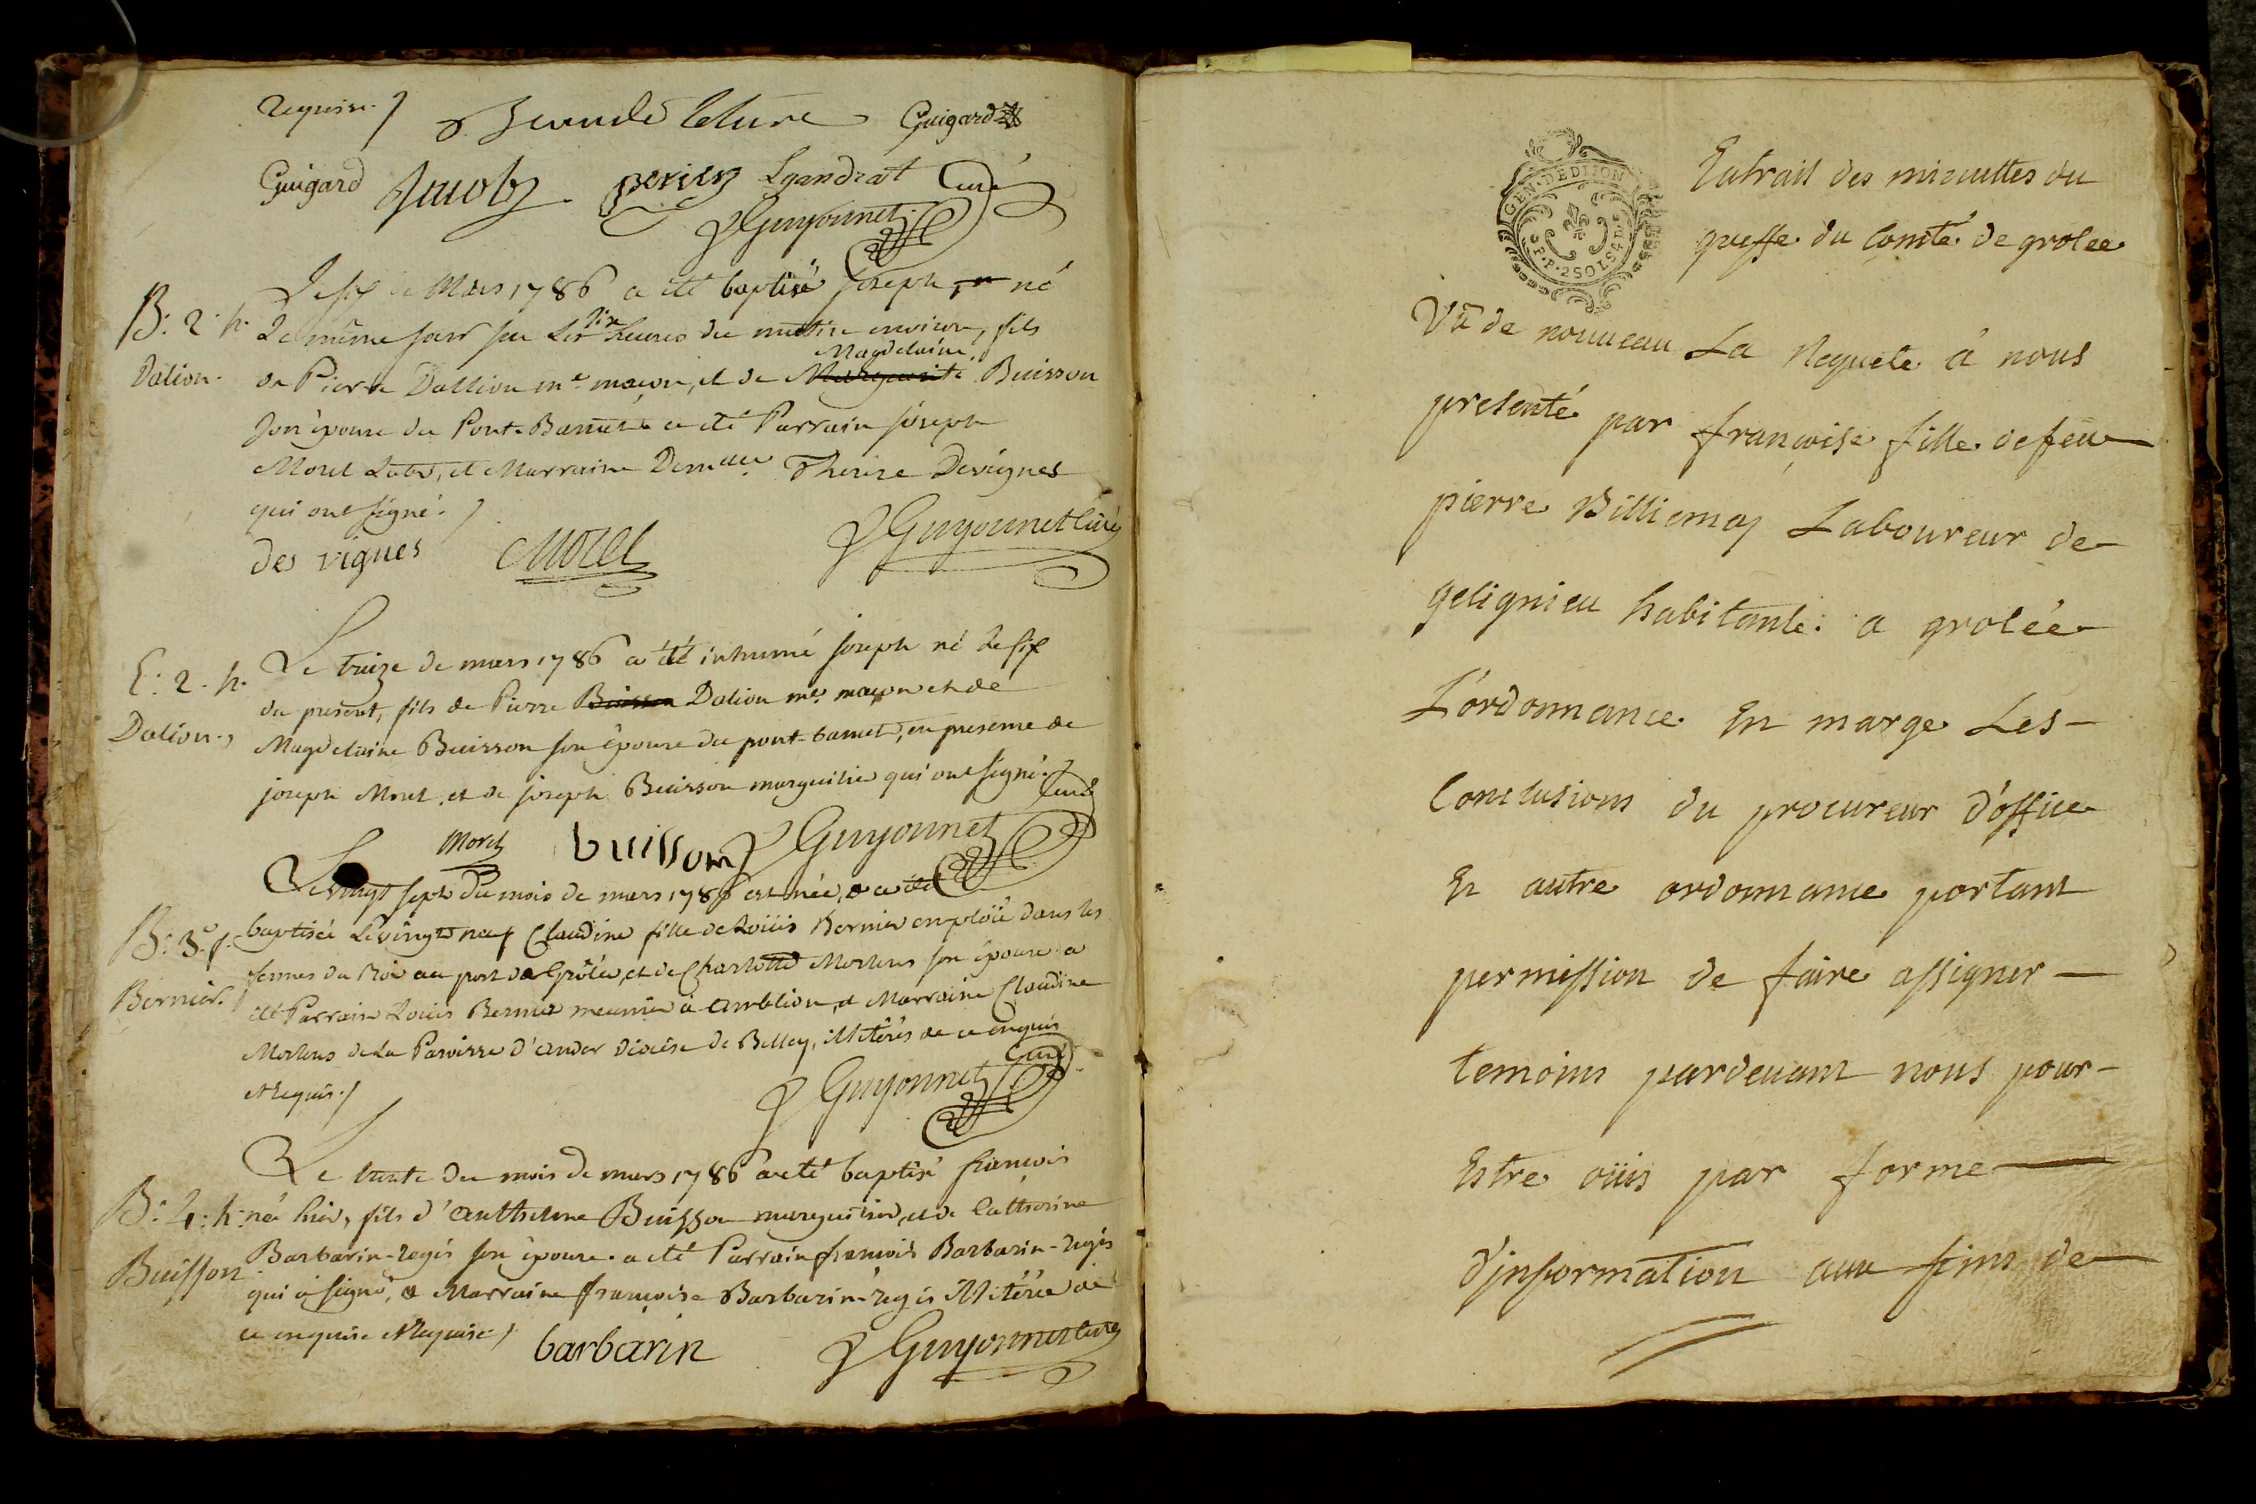 requise./.
Guigard
Guigard Jacob perier Lyandrat Curé
Guyonnet
B: 2. h.
Dalion.
Le six de Mars 1786 a été baptisé joseph né
Le même jour sur Les dix heures du matin environ, fils
de Pierre Dallion me. maçon, et de Marguerite Magdelaine Buisson
son épouse du Pont-Barnet a été Parrain joseph
Morel et Marraine Demelle Therese Devignes
qui ont signé./.
des vignes Morel Guyonnet Curé
E: 2. h.
Dalion.,
Le treize de mars 1786 a été inhumé joseph né le six
du présent, fils de Pierre Buisson Dalion me. maçon et de
Magdelaine Buisson son épouse du pont-barnet, en presence de
joseph Morel, et de joseph Buisson marguilier qui ont signé./.
Morel buisson Guyonnet Curé
B: 3e. f.
Bernier.
Le vingt sept du mois de mars 1786 est née, & a été
baptisée Le vingt neuf Claudine fille de Loüis Bernier emploïé dans les
fermes du Roi au port de Grôlée, et de Charlotte Mortens son épouse. a
été Parrain Loüis Bernier meunier à amblion, et Marraine Claudine
Mortens de La Paroisse d'andor diocèse de Belley, illitérés de ce enquis
et requis./.
Guyonnet Curé
B: 4: h:
Buisson
Le trente du mois de mars 1786 a été baptisé françois
né hier, fils d'anthelme Buisson marguilier, et de Catherine
Barbarin-regis son épouse. a été Parrain françois Barbarin-regis
qui a signé, & Marraine françoise Barbarin-regis illitérée de
ce enquise et requise./.
barbarin Guyonnet Curé
GEN. D'EDIJON
F.P. 2 SOLS 4 D.
Extrait des minuttes du
greffe du Comté de grolee
Vû de nouveau La Requete à nous
presenté par françoise fille de feu
pierre Billiemaz Laboureur de
gelignieu habitante a grolée
L'ordonnance En marge Les
Conclusions du procureur d'office
En autre ordonnance portant
permission de faire assigner
temoins pardevant nous pour
Estre oüis par forme
d'information aux fins de